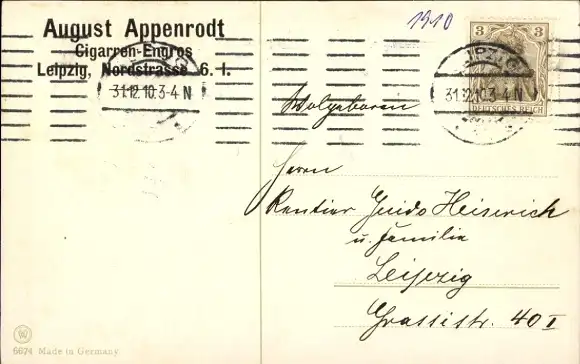 August Appenrodt
Cigarren-Engros
Leipzig, Nordstrasse 6. I.
1910
3 3
DEUTSCHES REICH
LEIPZIG
31.12.10.3-4 N
31.12.10.3-4 N
Wolgeboren
Herrn
Rentier Guido Heiserich
u. Familie
Leipzig
Grassistr. 40 I
6624 Made in Germany